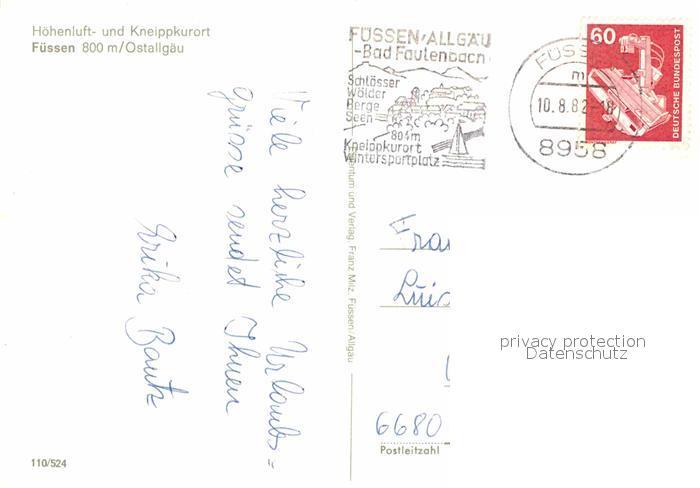 Höhenluft- und Kneippkurort
Füssen 800 m/Ostallgäu
Viele herzliche Urlaubs=
grüsse sendet Ihnen
Erika Bautz
110/524
FÜSSEN/ALLGÄU
-Bad Faulenbach
Schlösser
Wälder
Berge
Seen
804m
Kneippkurort
Wintersportplatz
FÜSS
m
10.8.82-18
8958
60
DEUTSCHE BUNDESPOST
und Verlag Franz Milz, Füssen/Allgäu
Frau
Luis
privacy protection
Datenschutz
6680
Postleitzahl